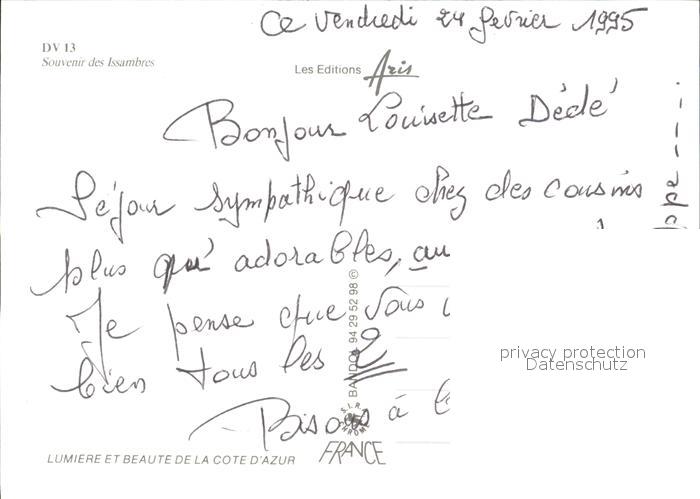 Ce vendredi 24 février 1995
DV 13
Souvenir des Issambres
Les Editions Aris
Bonjour Louisette Dédé
Séjour sympathique chez des cousins
plus qu' adorables, au
Je pense que vous
bien tous les 2
Bisous à
BANDOL 94 29 52 98 ©
FRANCE
LUMIERE ET BEAUTE DE LA COTE D'AZUR
privacy protection
Datenschutz